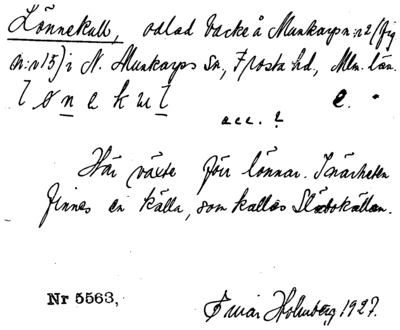 Lönnekull, odlad backe å Munkarp n:r 2 (fig
n:r 15) i N. Munkarps Sn, Frosta hd, Mlm. län.
l ø n e k u l e.
acc. 2
Här växte förr lönnar. I närheten
finnes en källa, som kallas Släbokällan.
Nr 5563,
Einar Holmberg 1927.